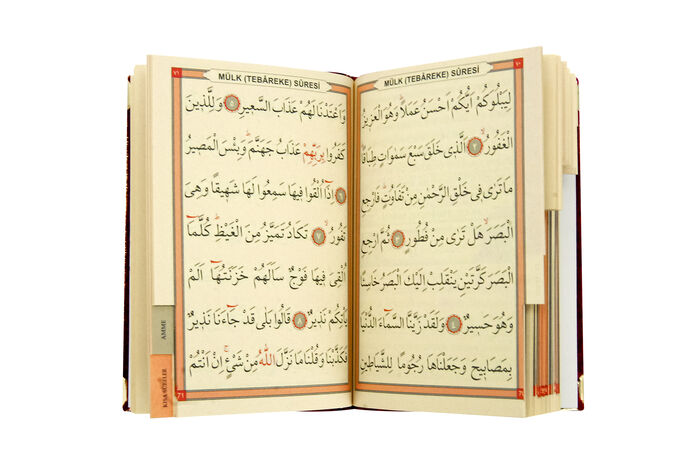 ٧٠
MÜLK (TEBÂREKE) SÛRESİ
لِيَبْلُوَكُمْ اَيُّكُمْ اَحْسَنُ عَمَلًاۜ وَهُوَ الْعَزِيزُ
الْغَفُورُۙ ﴿٢﴾ اَلَّذِي خَلَقَ سَبْعَ سَمٰوَاتٍ طِبَاقًاۜ
مَا تَرٰى فِي خَلْقِ الرَّحْمٰنِ مِنْ تَفَاوُتٍۜ فَارْجِعِ
الْبَصَرَۙ هَلْ تَرٰى مِنْ فُطُورٍ ﴿٣﴾ ثُمَّ ارْجِعِ
الْبَصَرَ كَرَّتَيْنِ يَنْقَلِبْ اِلَيْكَ الْبَصَرُ خَاسِئًا
وَهُوَ حَسِيرٌ ﴿٤﴾ وَلَقَدْ زَيَّنَّا السَّمَٓاءَ الدُّنْيَا
بِمَصَابِيحَ وَجَعَلْنَاهَا رُجُومًا لِلشَّيَاطِينِ
٧١
MÜLK (TEBÂREKE) SÛRESİ
وَاَعْتَدْنَا لَهُمْ عَذَابَ السَّعِيرِ ﴿٥﴾ وَلِلَّذِينَ
كَفَرُوا بِرَبِّهِمْ عَذَابُ جَهَنَّمَۜ وَبِئْسَ الْمَصِيرُ
﴿٦﴾ اِذَٓا اُلْقُوا فِيهَا سَمِعُوا لَهَا شَهِيقًا وَهِيَ
تَفُورُۙ ﴿٧﴾ تَكَادُ تَمَيَّزُ مِنَ الْغَيْظِۜ كُلَّمَٓا
اُلْقِيَ فِيهَا فَوْجٌ سَاَلَهُمْ خَزَنَتُهَٓا اَلَمْ
يَأْتِكُمْ نَذِيرٌ ﴿٨﴾ قَالُوا بَلٰى قَدْ جَٓاءَنَا نَذِيرٌ
فَكَذَّبْنَا وَقُلْنَا مَا نَزَّلَ اللّٰهُ مِنْ شَيْءٍۚ اِنْ اَنْتُمْ
٧١
AMME
KISA SÛRELER